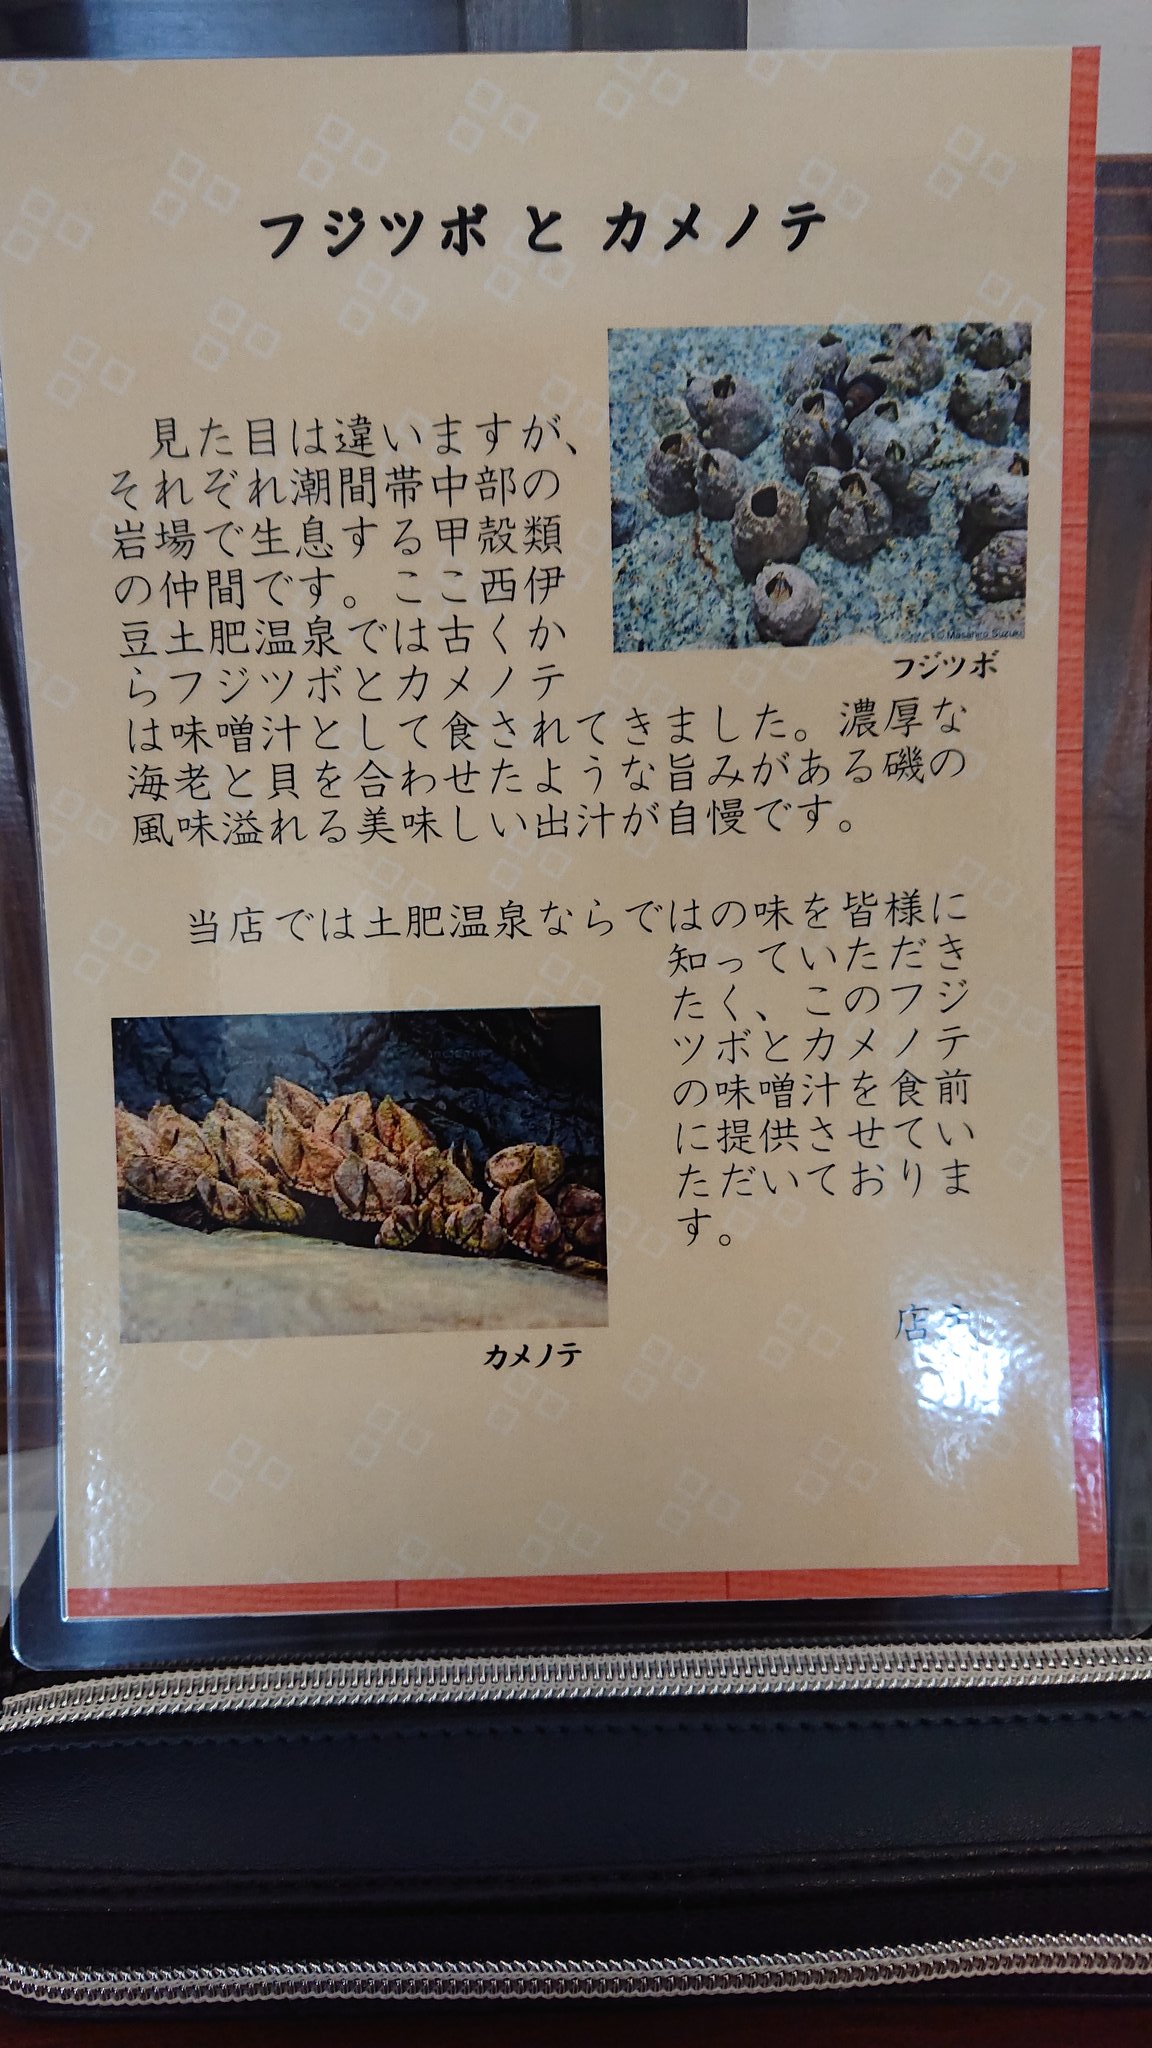 フジツボ と カメノテ
見た目は違いますが、
それぞれ潮間帯中部の
岩場で生息する甲殻類
の仲間です。ここ西伊
豆土肥温泉では古くか
らフジツボとカメノテ
は味噌汁として食されてきました。濃厚な
海老と貝を合わせたような旨みがある磯の
風味溢れる美味しい出汁が自慢です。
© Masahiro Suzuki
フジツボ
当店では土肥温泉ならではの味を皆様に
知っていただき
たく、このフジ
ツボとカメノテ
の味噌汁を食前
に提供させてい
ただいておりま
す。
カメノテ
店主